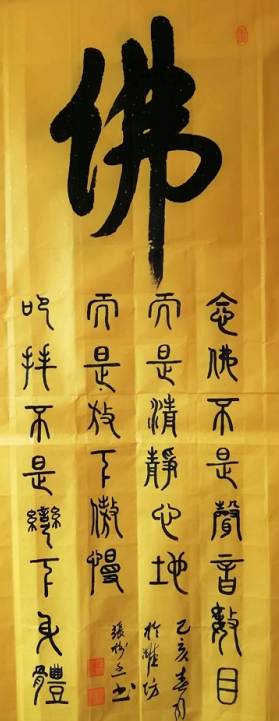 佛
念佛不是聲音數目
而是清靜心地
而是放下傲慢
叩拜不是彎下身體
己亥春月
於濰坊
張 書